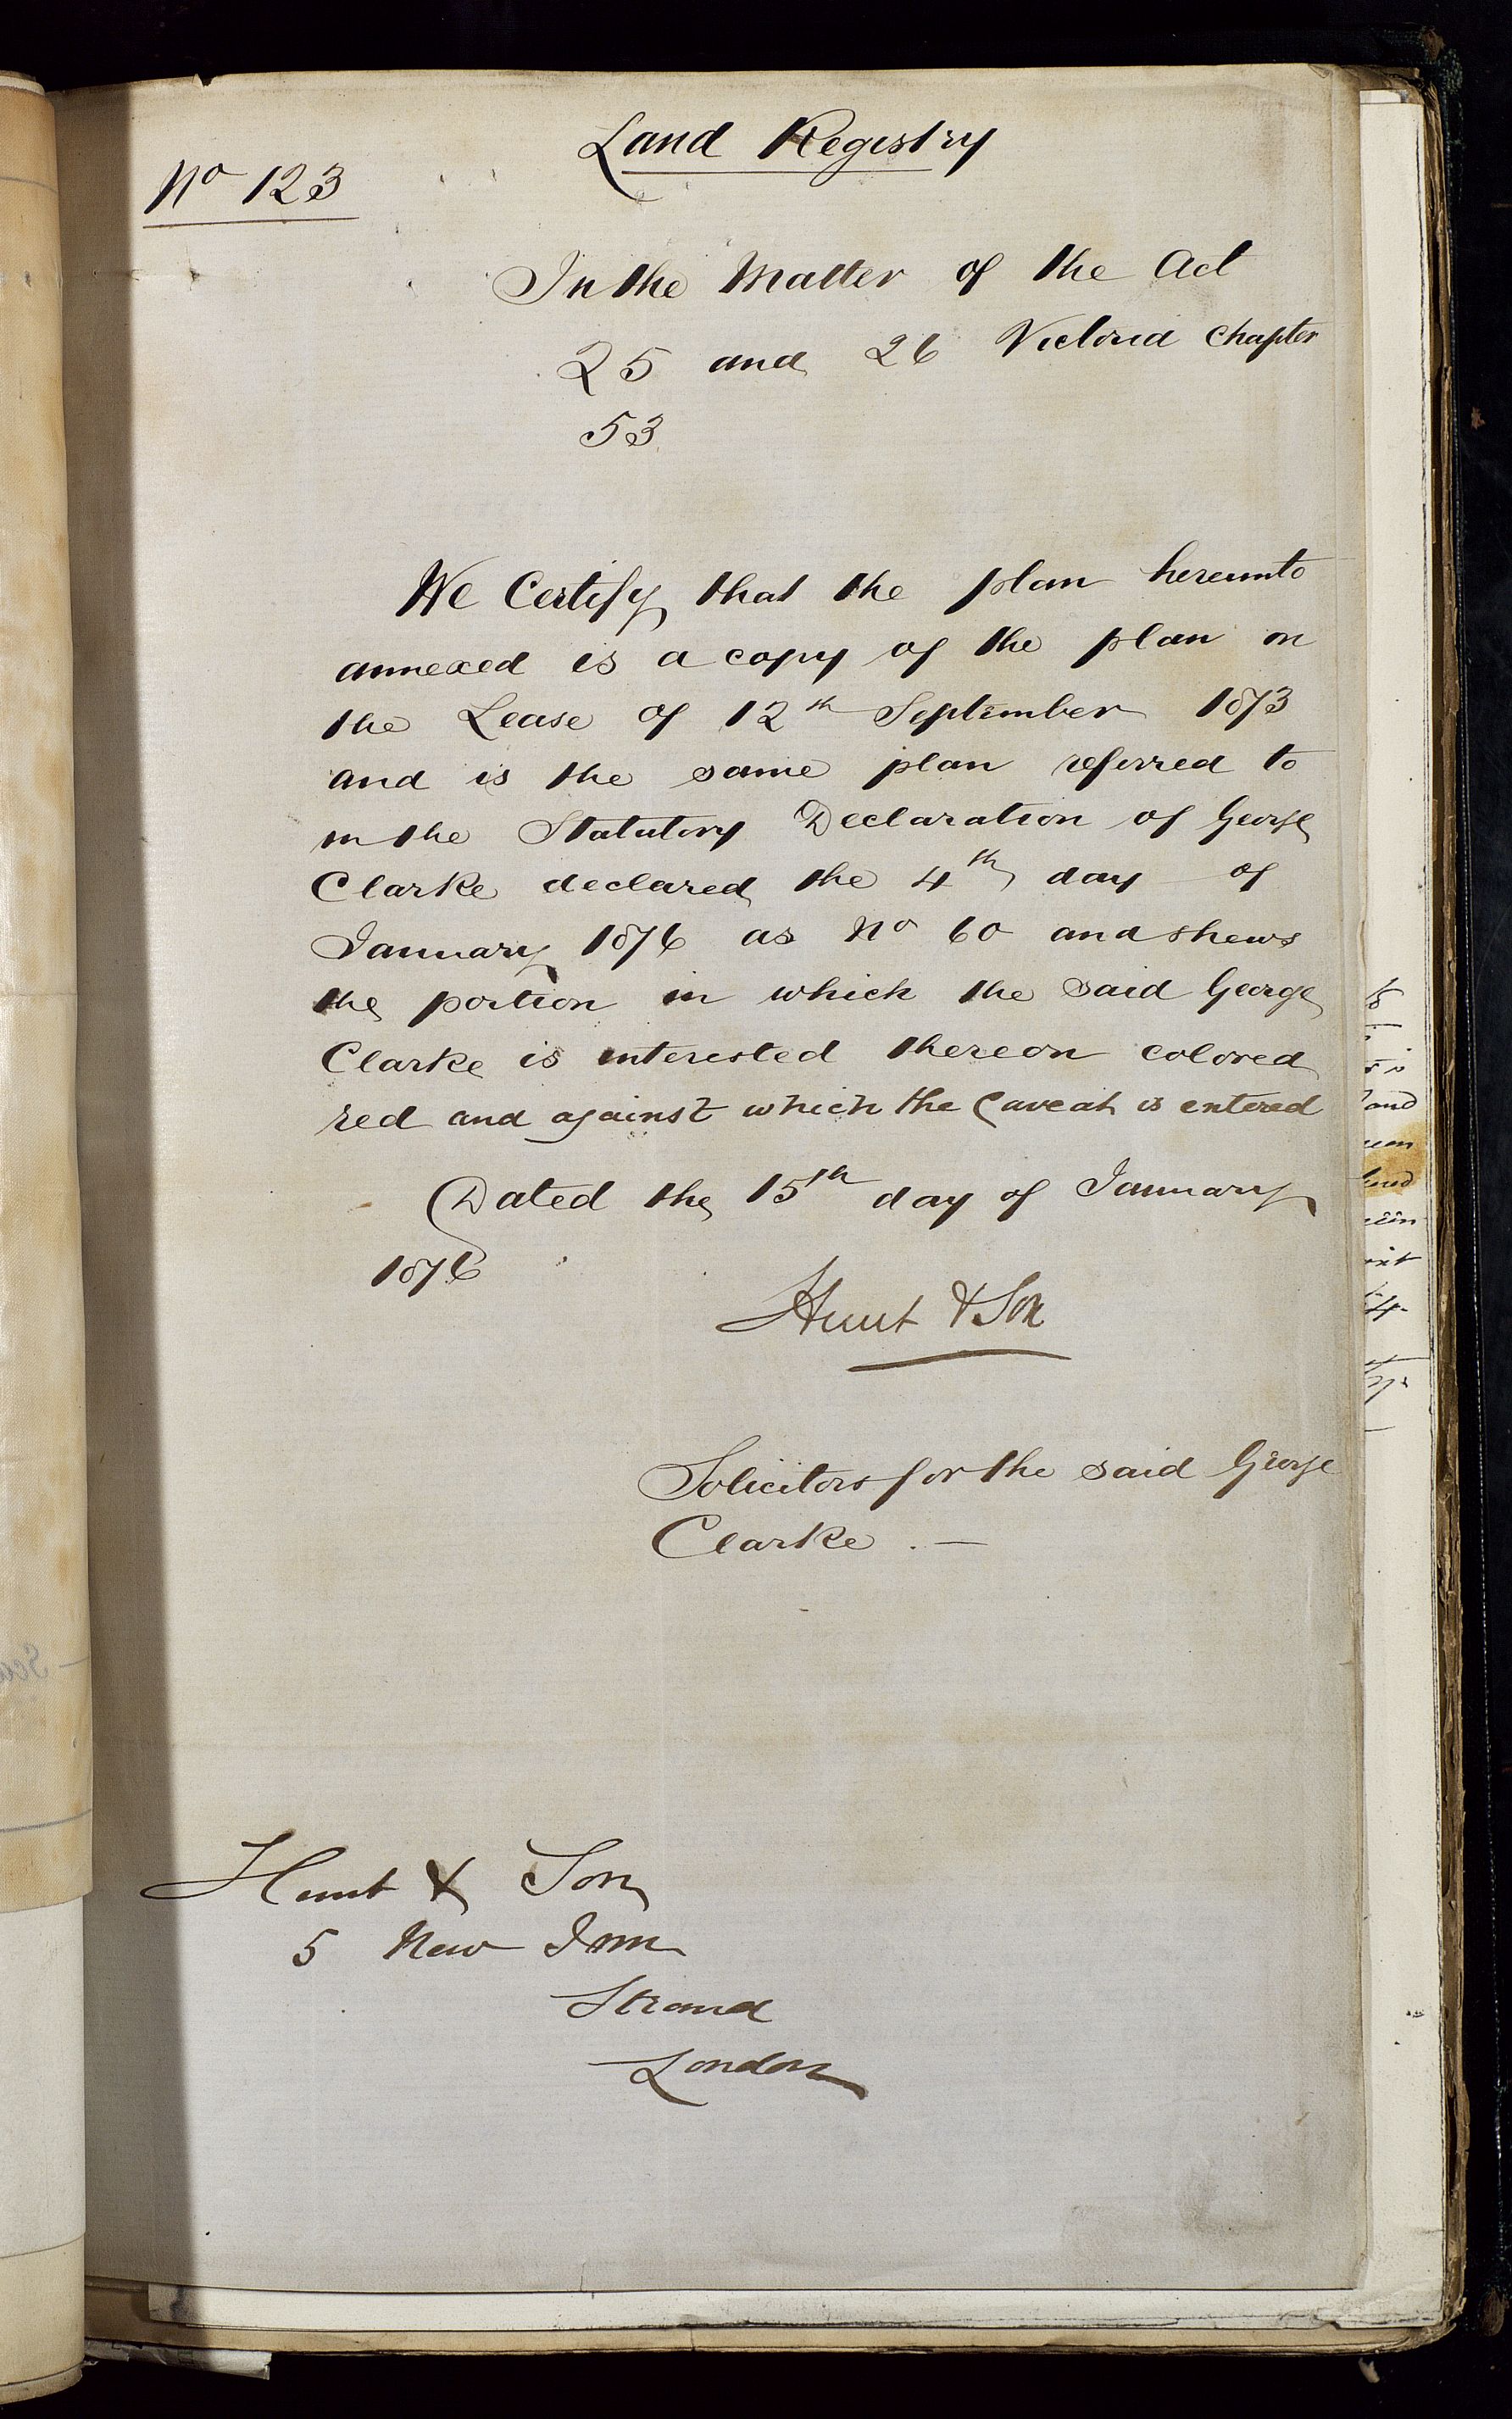 Land Registry
No 123
In the Matter of the Act
25 and 26 Victoria Chapter
53
We Certify that the plan hereunto
annexed is a copy of the plan on
the Lease of 12th September 1873
and is the same plan referred to
in the Statutory Declaration of George
Clarke declared the 4th day of
January 1876 as No 60 and shews
the portion in which the said George
Clarke is interested thereon colored
red and against which the Caveat is entered
Dated the 15th day of January
1876
Hunt & Son
Solicitors for the said George
Clarke . —
Hunt & Son
5 New Inn
Strand
London